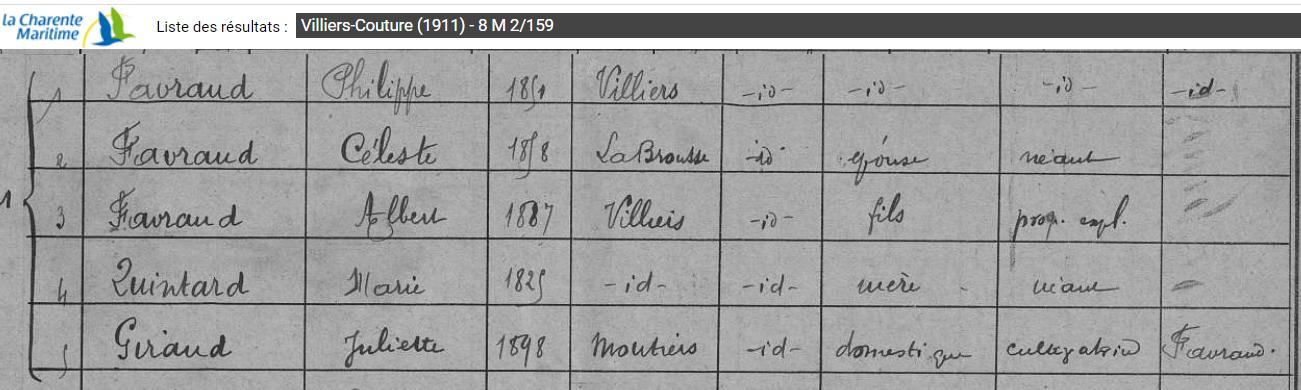 la Charente Maritime Liste des résultats : Villiers-Couture (1911) - 8 M 2/159
1 Favraud Philippe 1851 Villiers -id- -id- -id- -id-
2 Favraud Céleste 1858 La Brousse -id- épouse néant
1 3 Favraud Albert 1887 Villiers -id- fils prop. expl.
4 Quintard Marie 1825 -id- -id- mère néant
5 Geraud Juliette 1898 Moutiers -id- domestique Favraud.